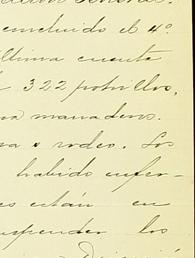 concluido el 4º
última cuenta
322 potrillos,
manadas.
a rodeo. Los
habido enfer-
es están en
suspender los